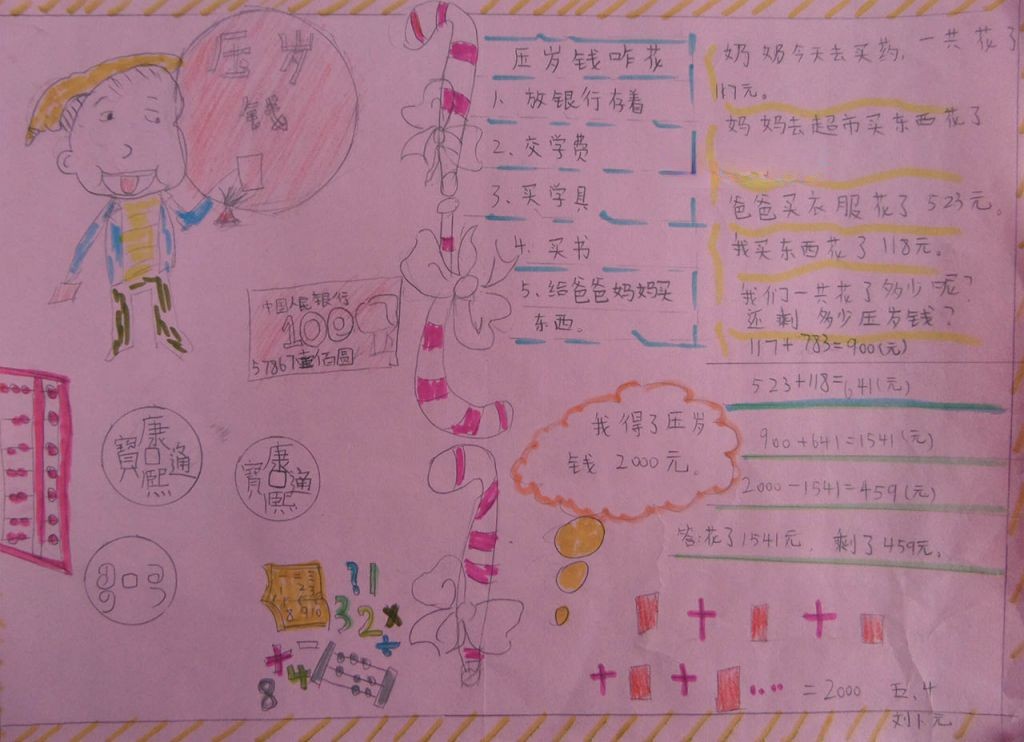 压岁
钱
压岁钱咋花
1、放银行存着
2、交学费
3、买学具
4、买书
5、给爸爸妈妈买
东西。
奶奶今天去买药，一共花了
117元。
妈妈去超市买东西花了
爸爸买衣服花了523元。
我买东西花了118元。
我们一共花了多少呢？
还剩多少压岁钱？
117+783=900(元)
523+118=641(元)
900+641=1541(元)
2000-1541=459(元)
答：花了1541元，剩了459元。
中国人民银行
100
57867壹佰圆
康熙通寶
康熙通寶
我得了压岁
钱2000元。
1 2 3
8 9 10
? 1
3 2 ×
+ - ÷
4
8
+ +
+ + ···· =2000
五、4